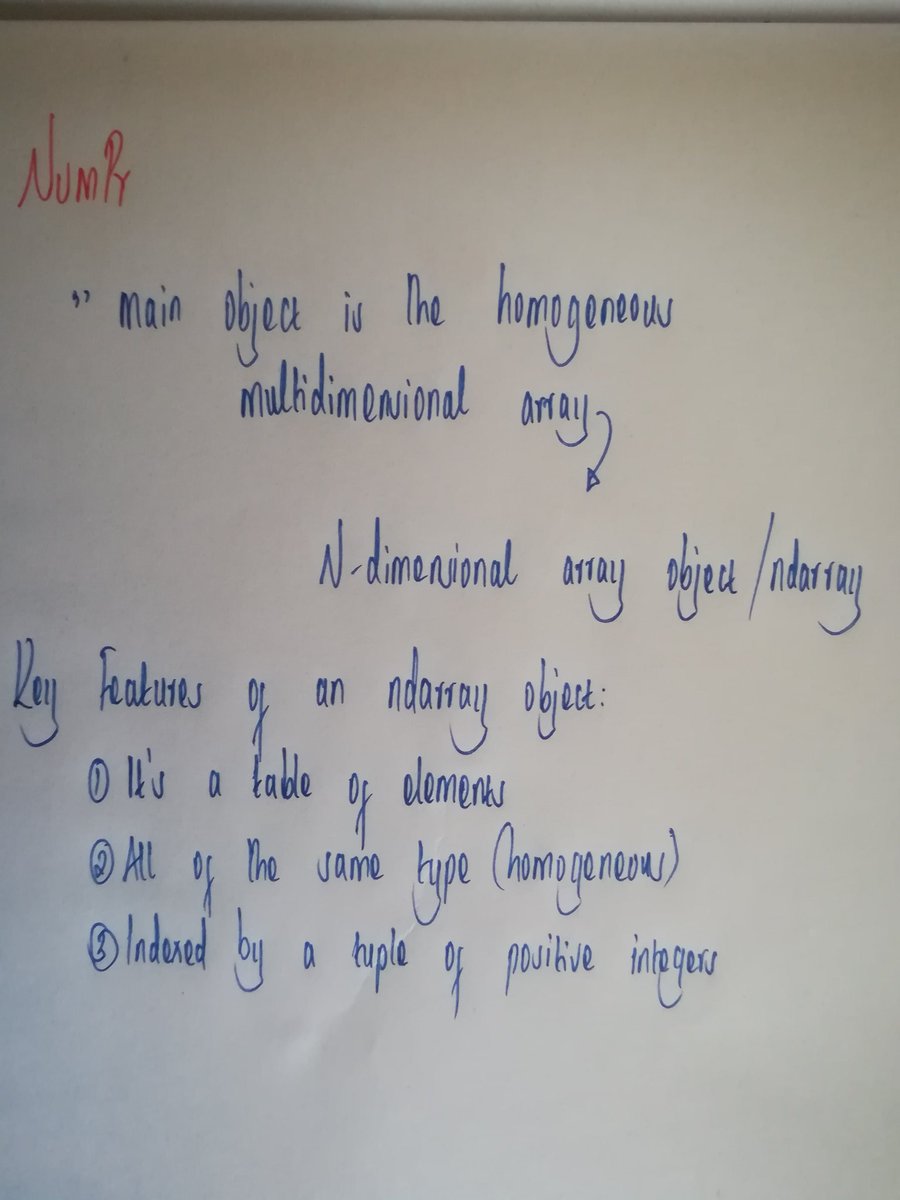 NUMPY
" main object is the homogeneous
multidimensional array
N-dimensional array object/ndarray
Key Features of an ndarray object:
① It's a table of elements
② All of the same type (homogeneous)
③ Indexed by a tuple of positive integers